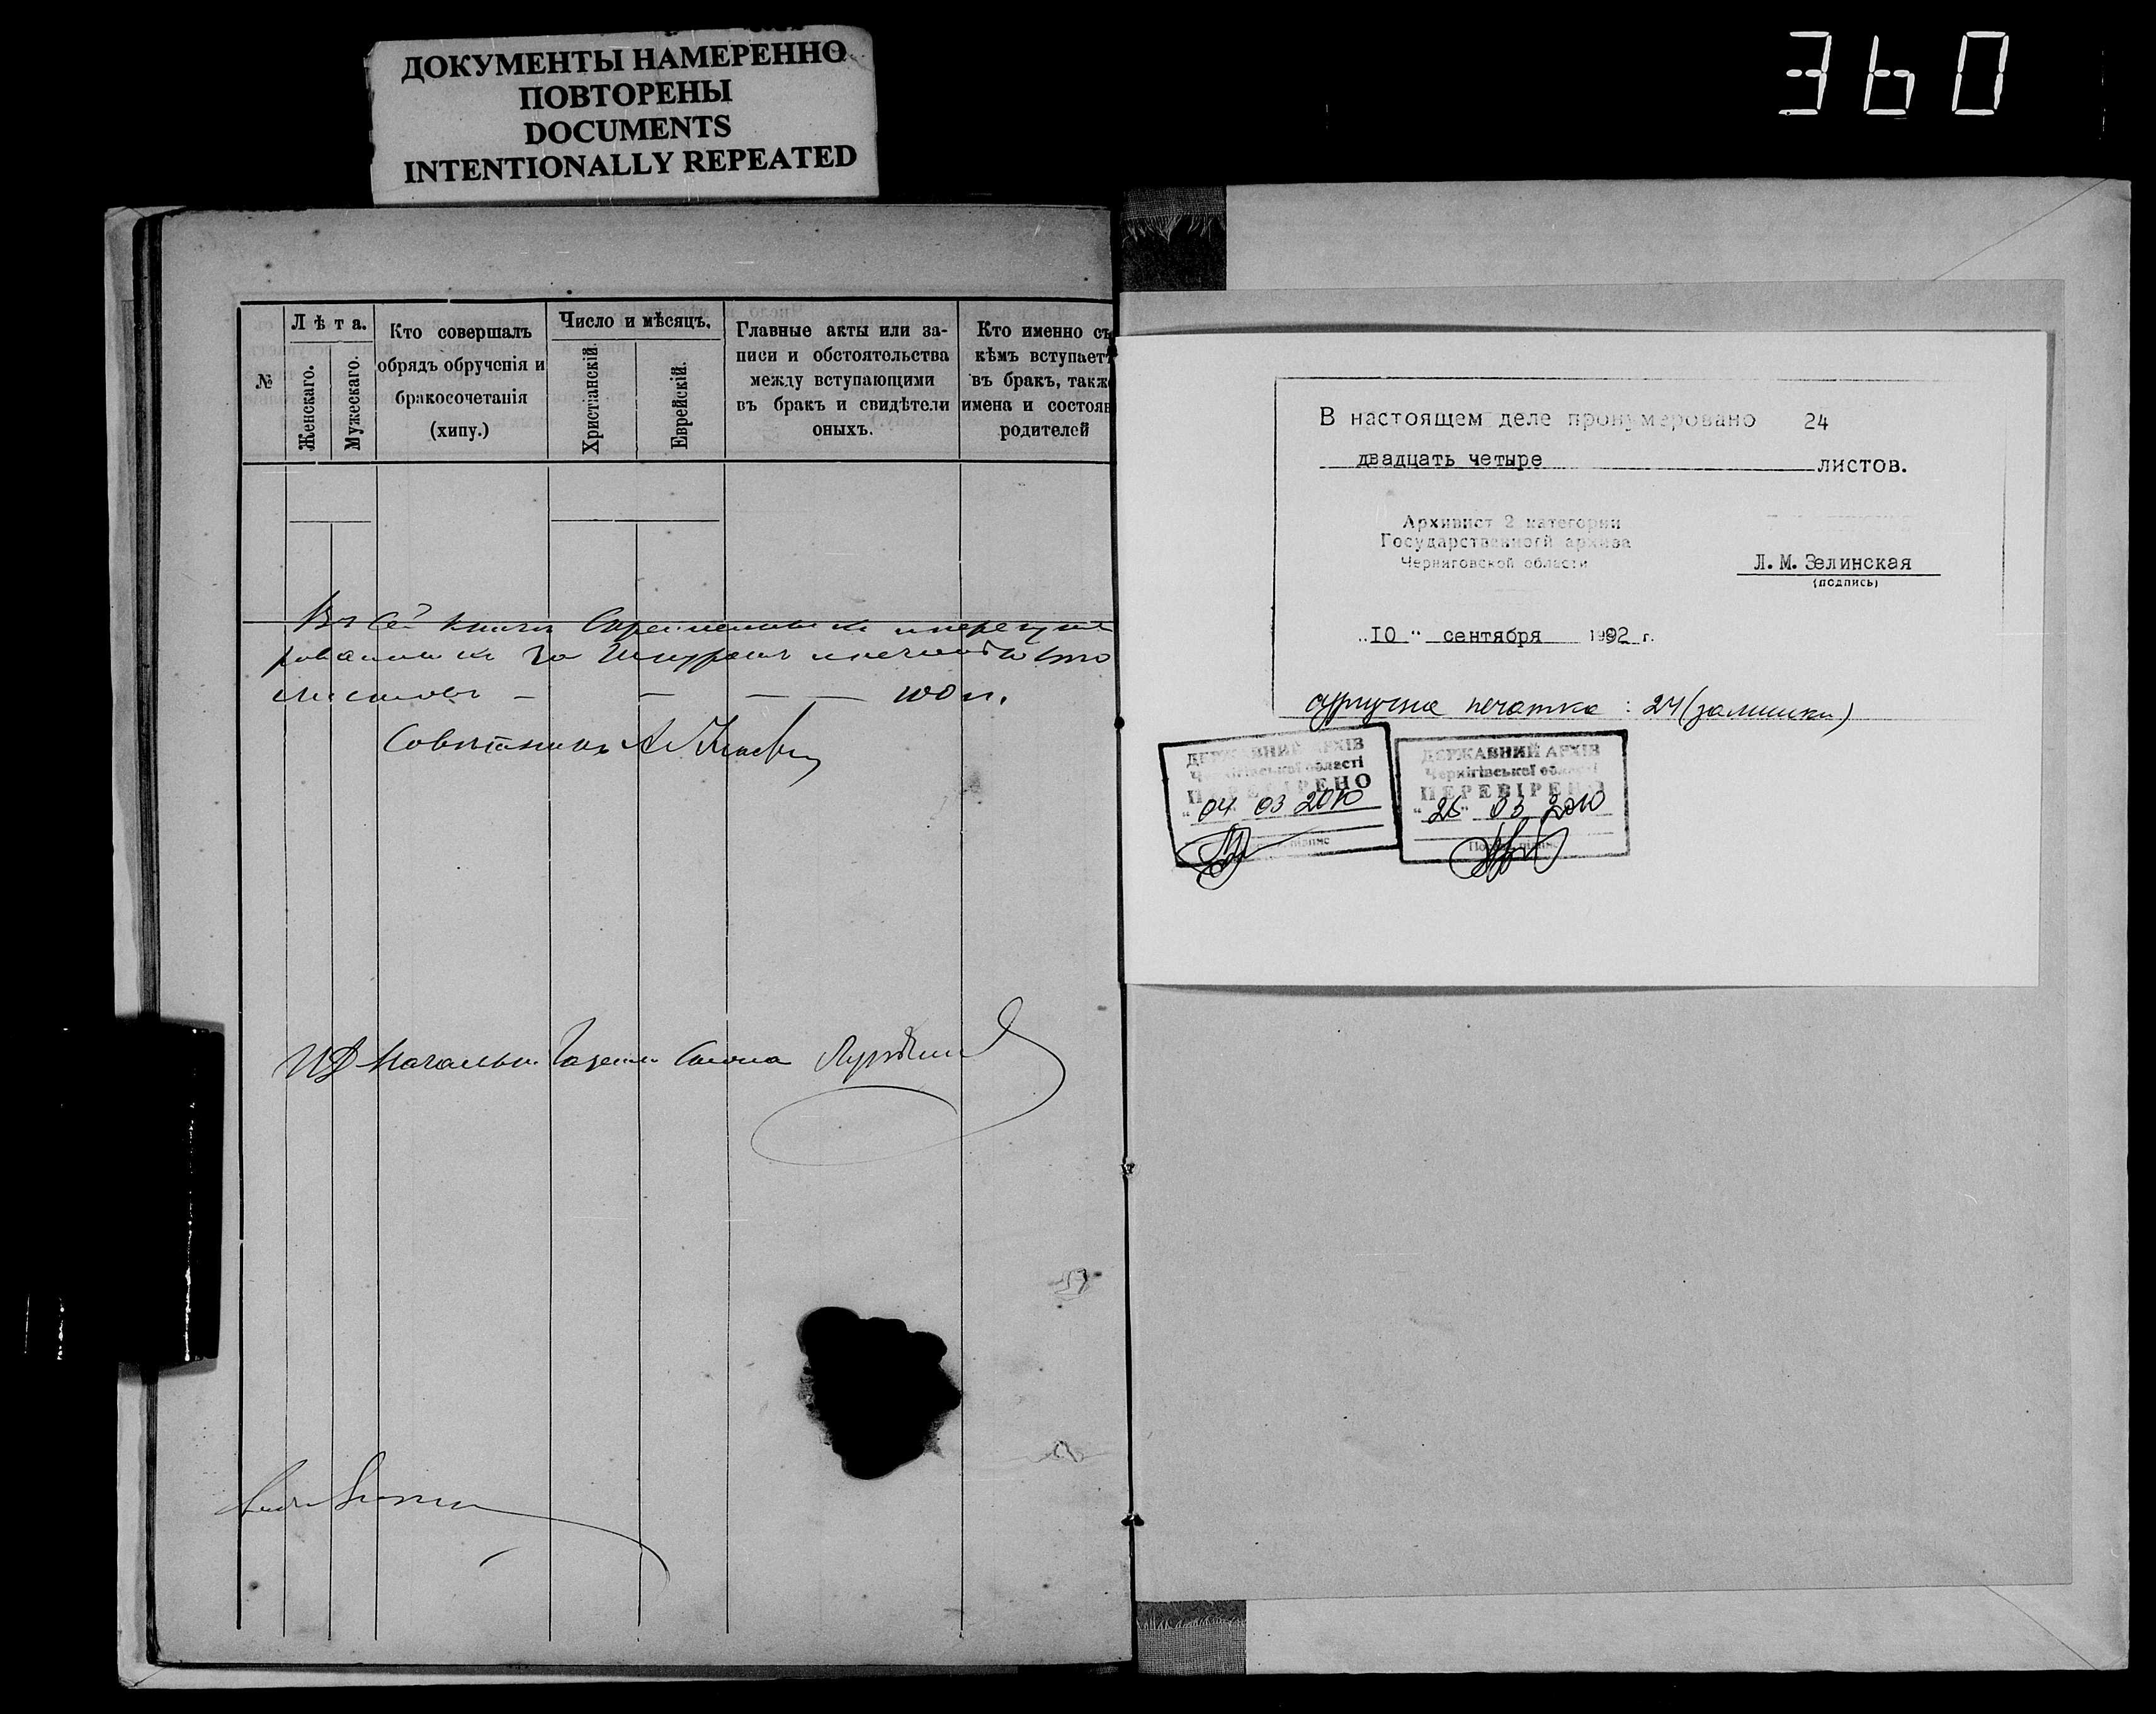 ДОКУМЕНТЫ НАМЕРЕННО
ПОВТОРЕНЫ
DOCUMENTS
INTENTIONALLY REPEATED
360
№
Лѣта.
Женскаго.
Мужескаго.
Кто совершалъ
обрядъ обрученія и
бракосочетанія
(хипу.)
Число и мѣсяцъ.
Христіанскій.
Еврейскій.
Главные акты или за-
писи и обстоятельства
между вступающими
въ бракъ и свидѣтели
оныхъ.
Кто именно съ
кѣмъ вступаетъ
въ бракъ, также
имена и состоян
родителей
Въ сей книгѣ
за шнуромъ и печатью сто
листовъ — — — — 100 л.
Совѣтникъ
ИД Начальн Газетн Стола
В настоящем деле пронумеровано 24
двадцать четыре листов.
Архивист 2 категории
Государственной архива
Черниговской области
Л.М.Зелинская
(подпись)
„10“ сентября 1992 г.
сургучна печатка : 24 (залишки)
ДЕРЖАВНИЙ АРХІВ
Чернігівської області
ПЕРЕВІРЕНО
“04 03 2010
підпис
ДЕРЖАВНИЙ АРХІВ
Чернігівської області
ПЕРЕВІРЕНО
“26” 03 2010
підпис